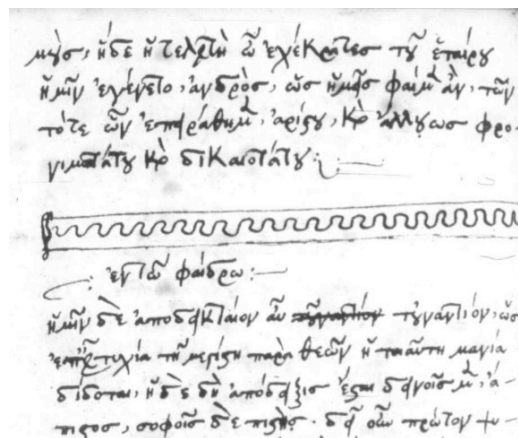 ἥδε ἡ τελευτὴ ὦ ἐχέκρατες τοῦ ἑταίρου
ἡμῖν ἐγένετο, ἀνδρὸς, ὡς ἡμεῖς φαῖμεν ἂν, τῶν
τότε ὧν ἐπειράθημεν, ἀρίστου, καὶ ἄλλως φρο-
νιμωτάτου καὶ δικαιοτάτου:
ἐν τῶ φαίδρω:
ἡμῖν δὲ ἀποδεικταίον αὖ τοὐναντίον, ὡς
ἐπ' εὐτυχία τῆ μεγίστη παρὰ θεῶν ἡ τοιαύτη μανία
δίδοται, ἡ δὲ δὴ ἀπόδειξις ἔσται δεινοῖς μὲν, ἄ-
πιστος, σοφοῖς δὲ πιστὴ. δεῖ οὖν πρῶτον ψυ-